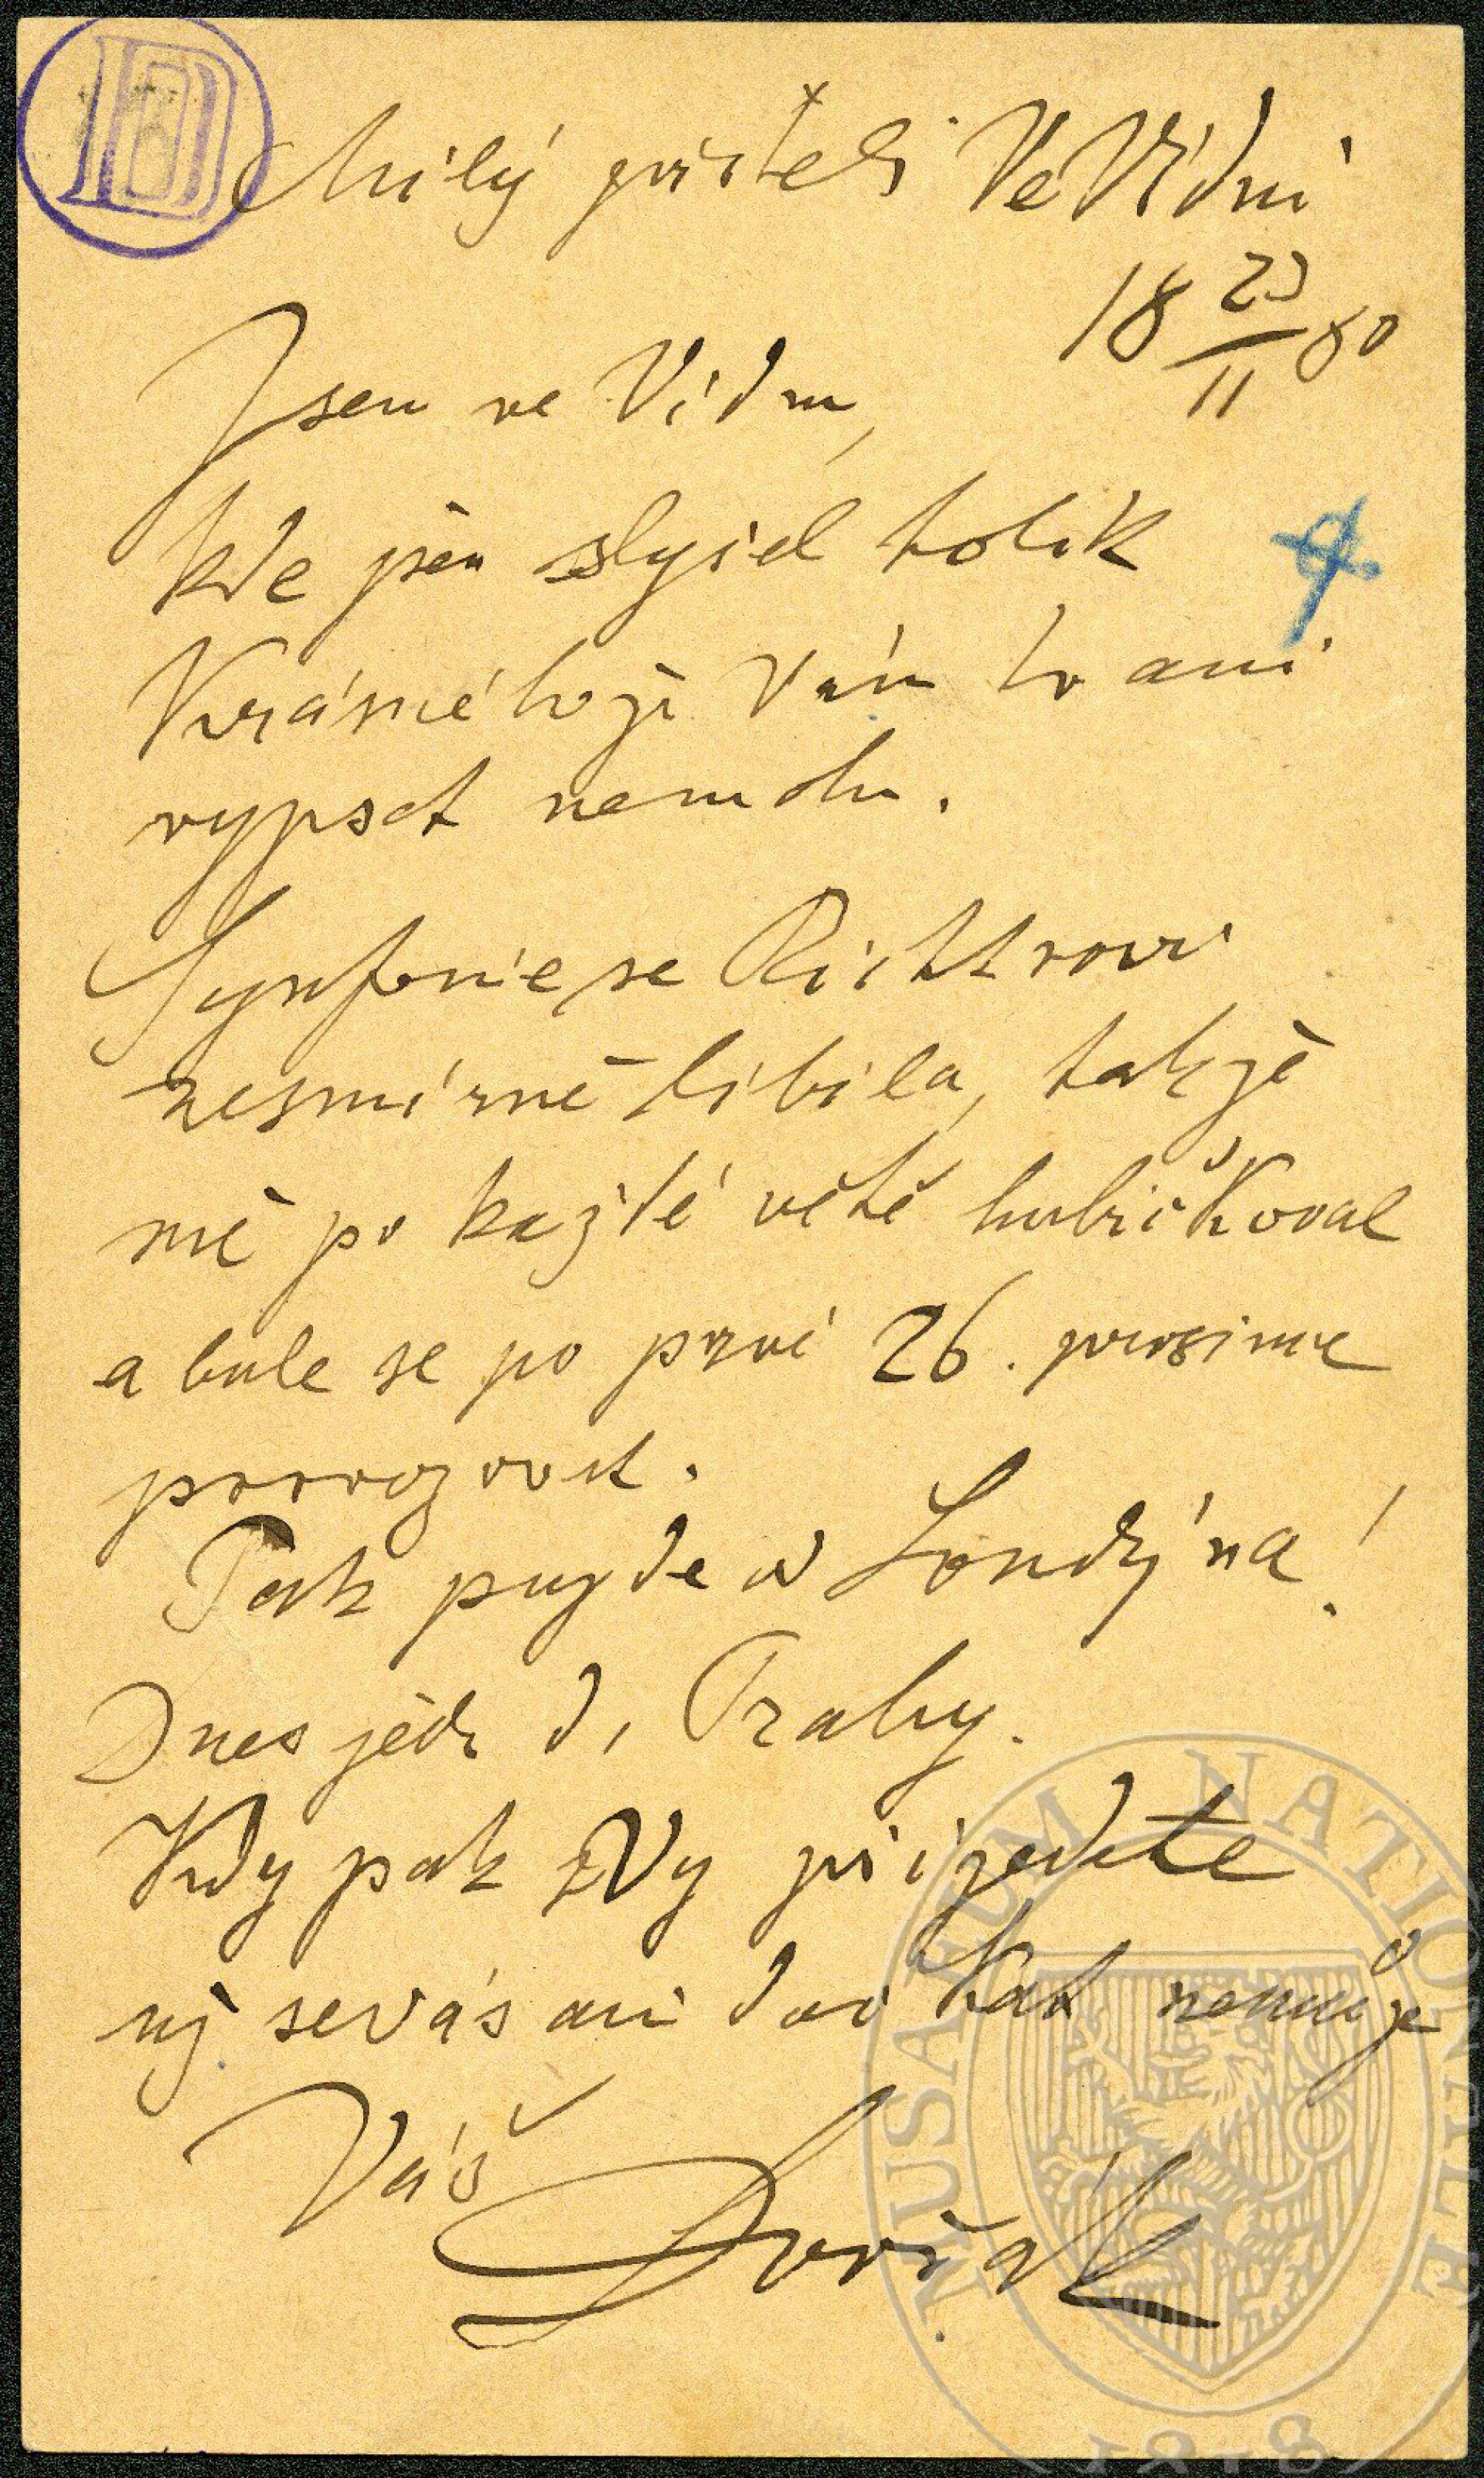 Milý příteli Ve Vídni
18 23/11 80
Jsem ve Vídni,
kde jsem slyšel tolik
Krásného že Vám to ani
vypsat nemohu.
Symfonie se Richtrovi
nesmírně líbila, takže
mě po každé větě hubičkoval
a bude se po prvé 26. prosince
provozovat.
Pak pujde do Londýna!
Dnes jedu do Prahy.
Kdy pak Vy přijedete
už se vás ani dočkat nemůže
Váš
Dvořák
MUSAEUM NATIONALE
1818